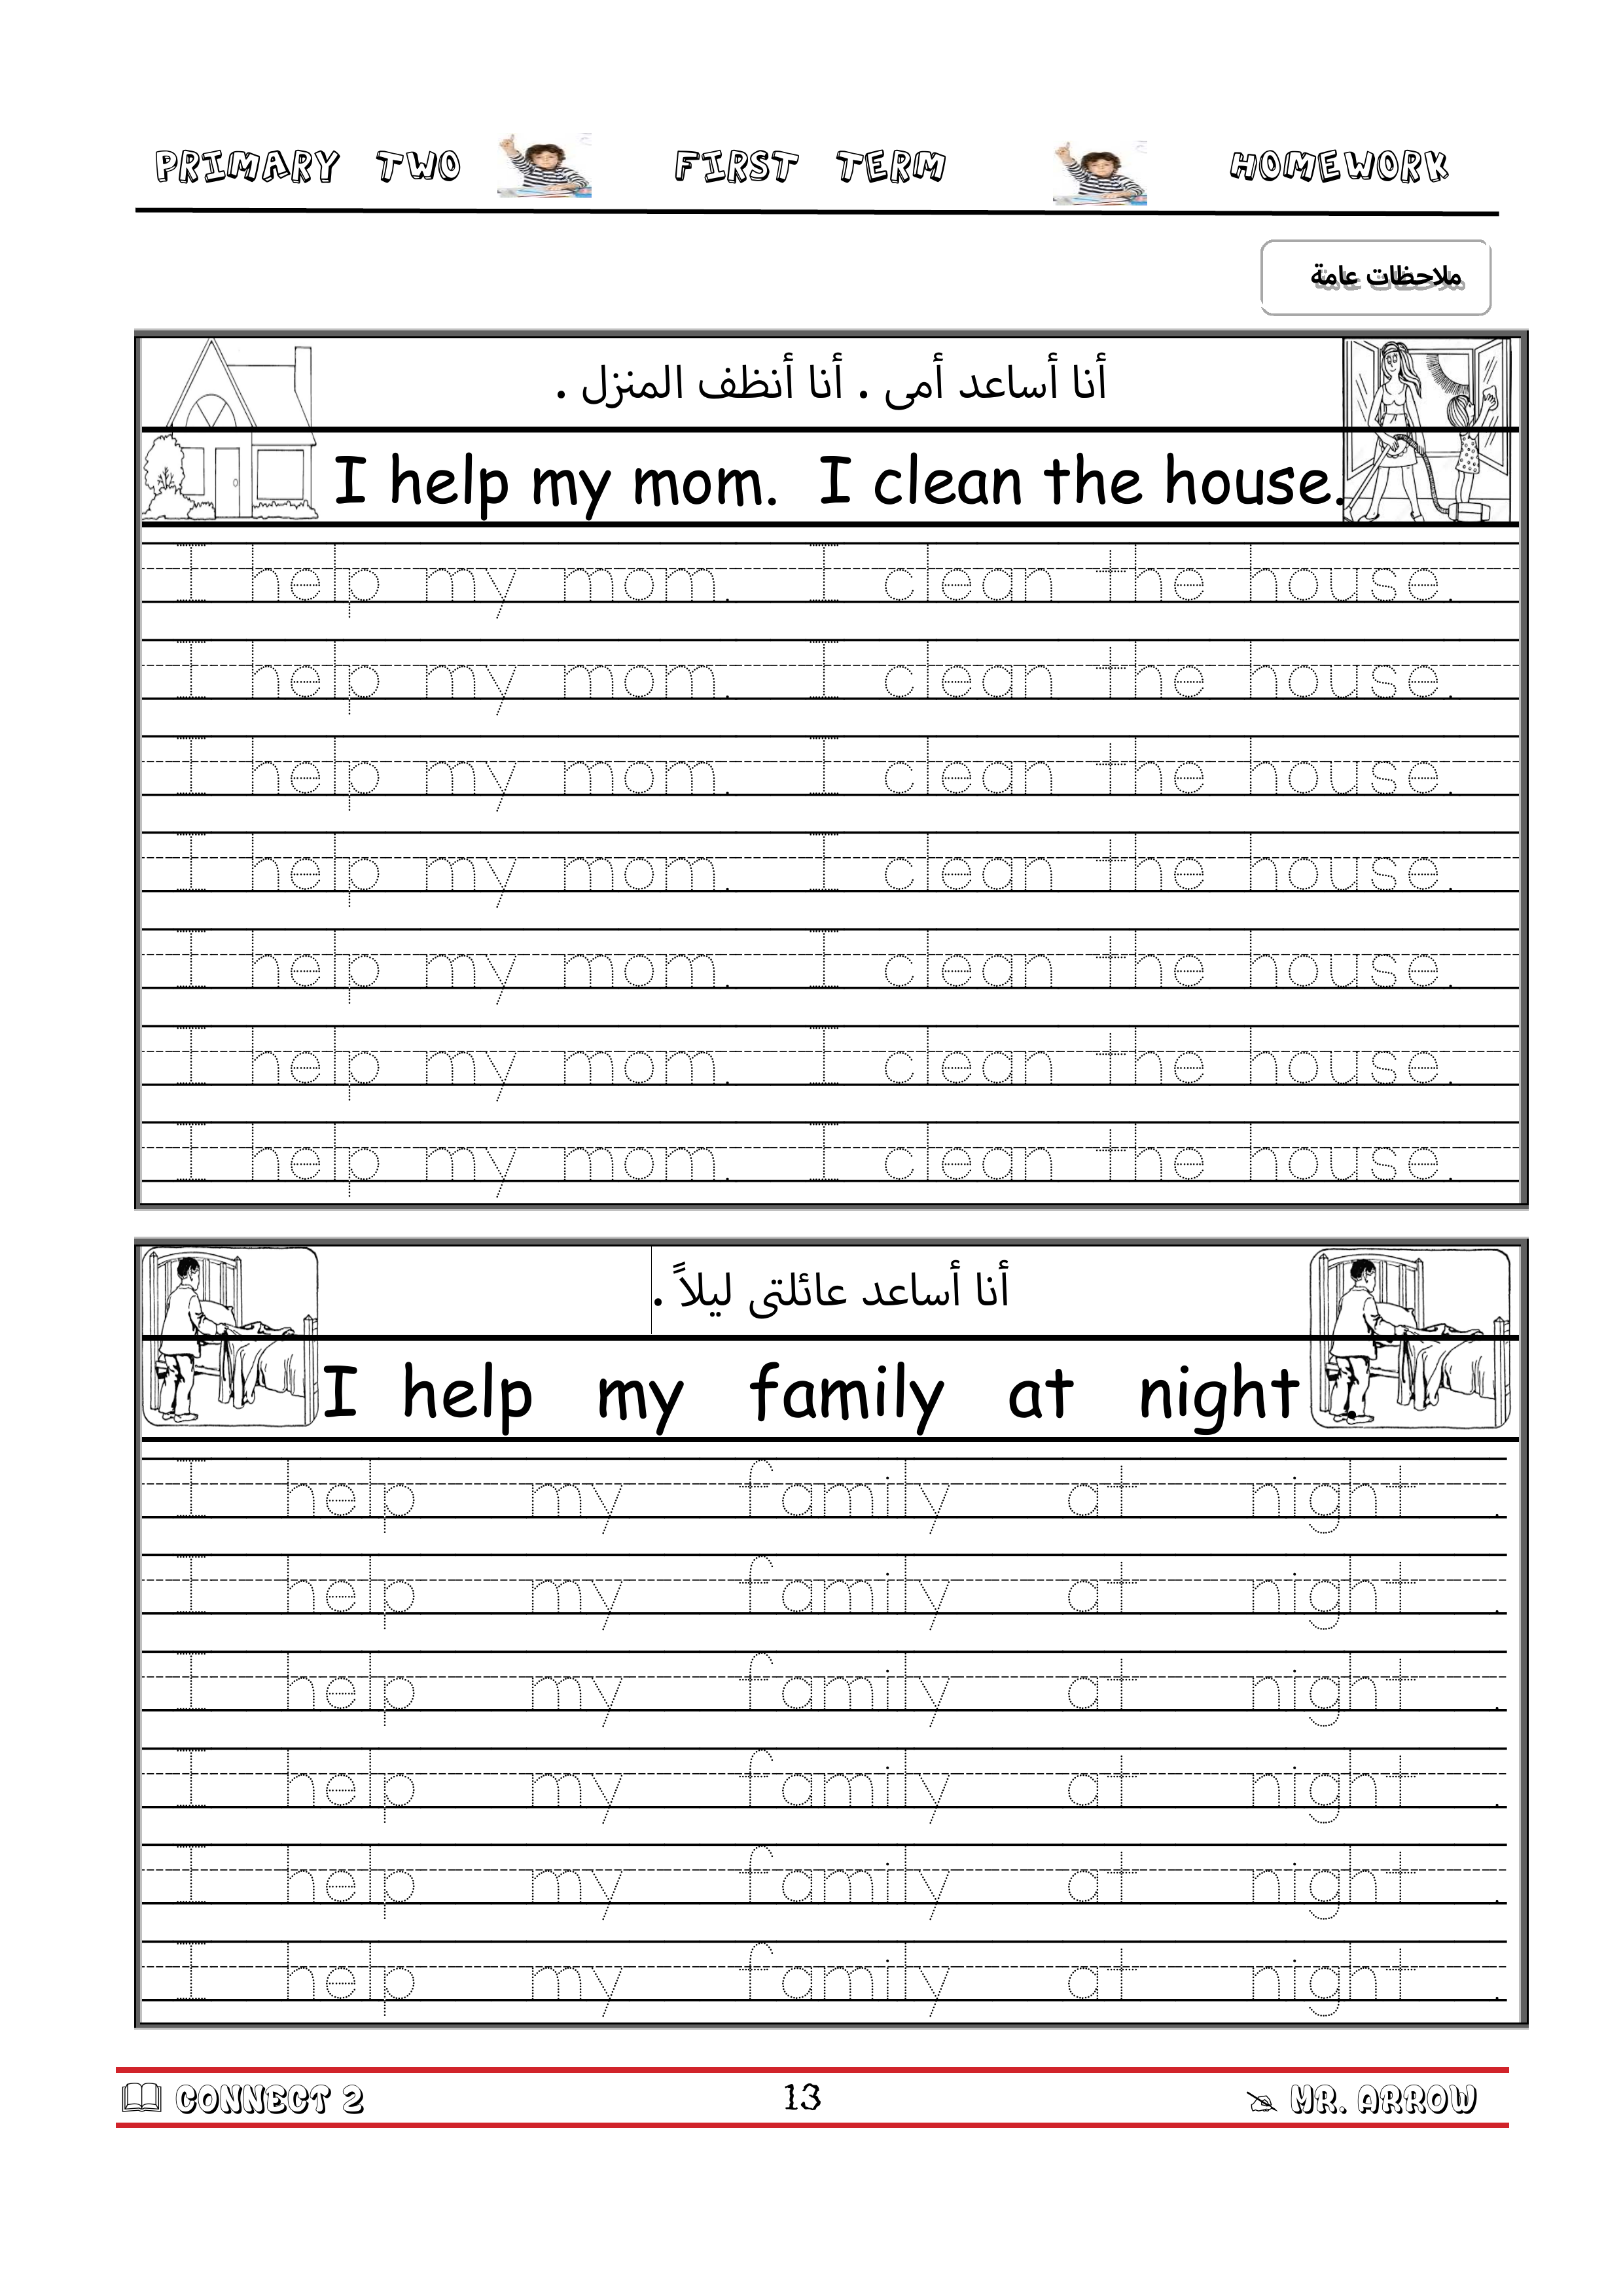 PRIMARY TWO FIRST TERM HOMEWORK
ملاحظات عامة
أنا أساعد أمى . أنا أنظف المنزل .
I help my mom. I clean the house.
I help my mom. I clean the house.
I help my mom. I clean the house.
I help my mom. I clean the house.
I help my mom. I clean the house.
I help my mom. I clean the house.
I help my mom. I clean the house.
I help my mom. I clean the house.
أنا أساعد عائلتى ليلاً .
I help my family at night .
I help my family at night .
I help my family at night .
I help my family at night .
I help my family at night .
I help my family at night .
I help my family at night .
CONNECT 2 13 MR. ARROW